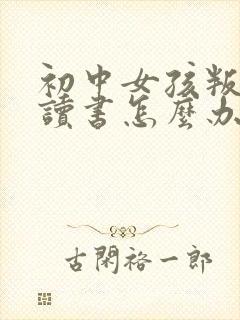 初中女孩叛
讀書怎麼办
古閑裕一郎